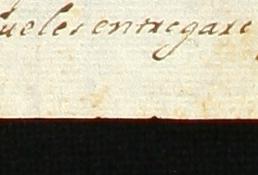 ueles entregare